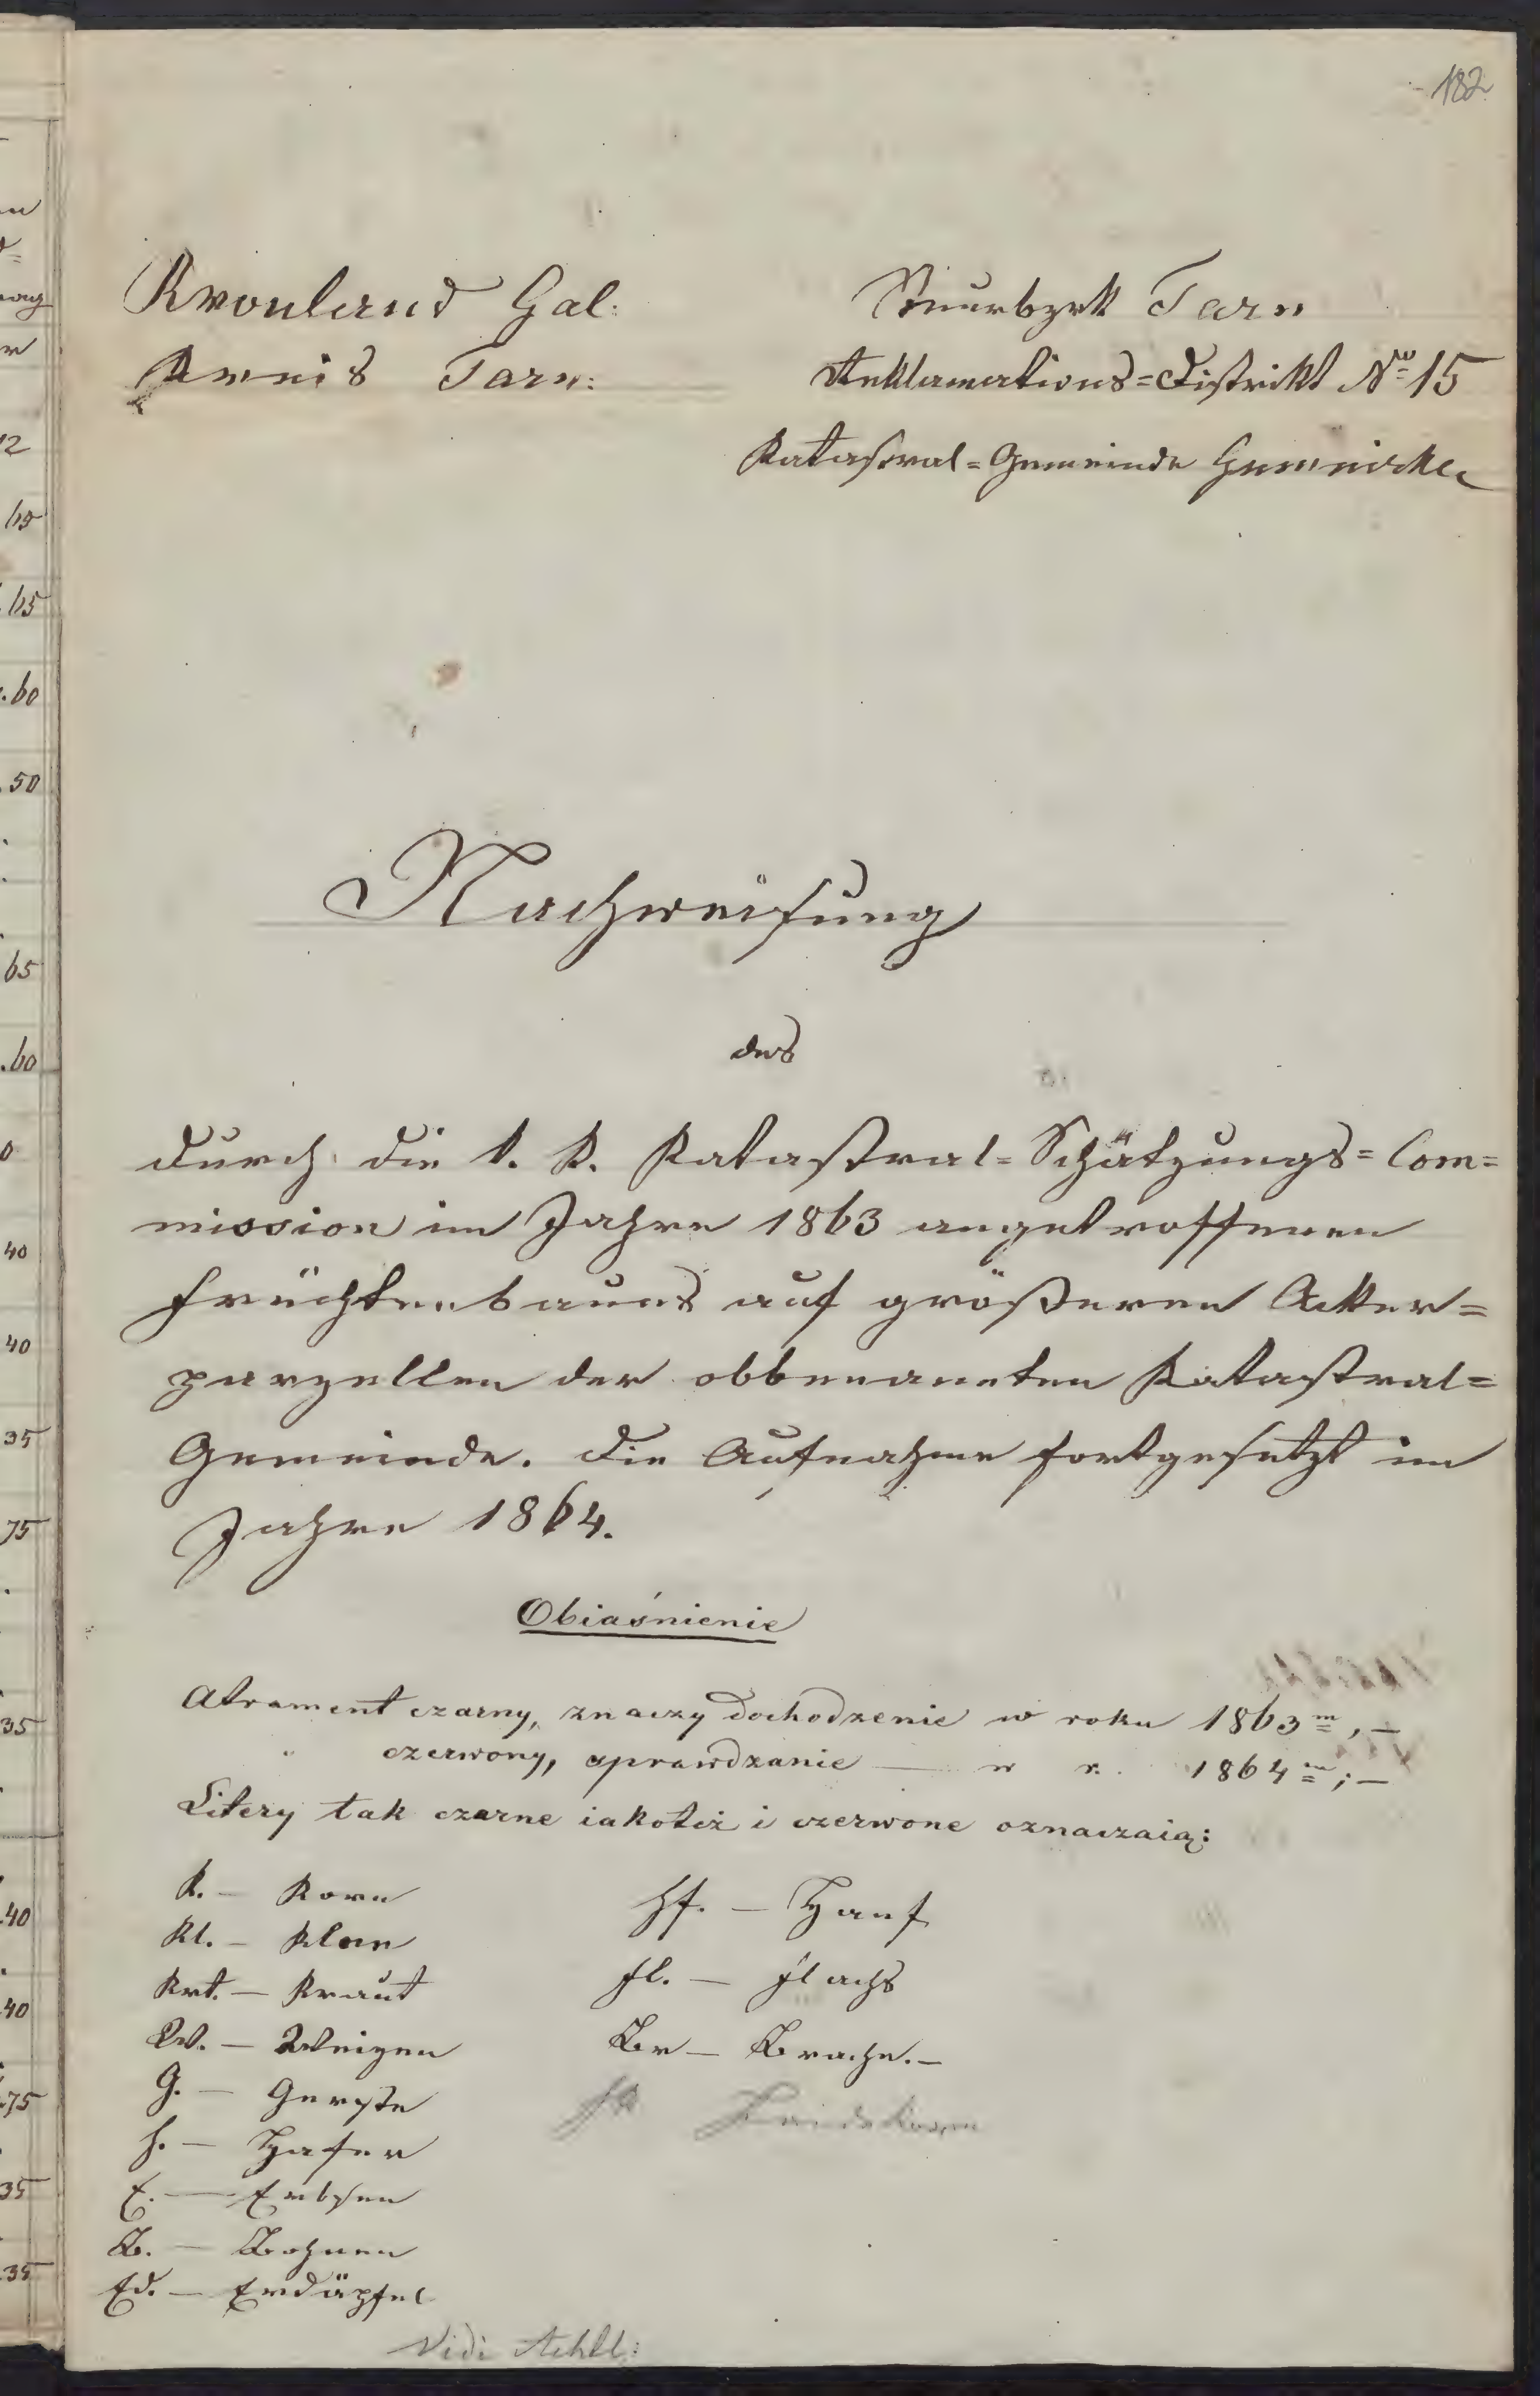 182
Kronland Gal:
Kreis Tarn:
Steuerbzrk Tarn
Reklamations=Distrikt No 15
Katastral=Gemeinde Gumniska
Nachweisung
des
durch die k. k. Katastral=Schätzungs=Com=
mission im Jahre 1863 angetroffenen
Früchtenbaues auf größeren Acker=
parzellen der obbenannten Katastral=
Gemeinde. Die Aufnahme fortgesetzt im
Jahre 1864.
Obiaśnienie
Atrament czarny, znaczy dochodzenie w roku 1863m,—
" czerwony, sprawdzanie — w r. 1864m;—
Litery tak czarne iakoteż i czerwone oznaczaią:
K. — Korn
Kl. — Klee
Krt. — Kraut
W. — Weizen
G. — Gerste
H. — Hafer
E. — Erbsen
B. — Bohnen
Ed. — Erdäpfel
Hf. — Hanf
Fl. — Flachs
Br — Brache.—
Vidi